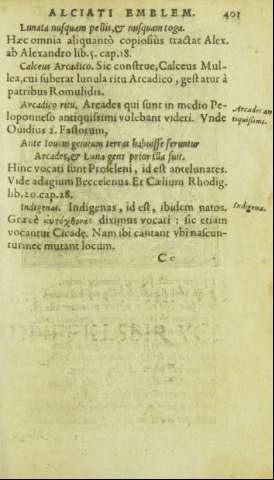 ALCIATI EMBLEM. 401
Lunata nusquam pellis, & nusquam toga.
Hæc omnia aliquantò copiosùs tractat Alex.
ab Alexandro lib. 5. cap. 18.
Calceus Arcadico. Sic construe, Calceus Mul-
lea, cui suberat lunula ritu Arcadico, gestatur à
patribus Romulidis.
Arcadico ritu. Arcades qui sunt in medio Pe-
loponneso antiquissimi volebant videri. Vnde
Arcades an
tiquissimi.
Ouidius 2. Fastorum,
Ante Iouem genitum terras habuisse feruntur
Arcades, & Luna gens prior illa fuit.
Hinc vocati sunt Proseleni, id est antelunares.
Vide adagium Beccelenus. Et Cælium Rhodig.
lib. 20. cap. 28.
Indigenas. Indigenas, id est, ibidem natos.
Indigena.
Græcè αὐτόχθονας diximus vocati: sic etiam
vocantur Cicadę. Nam ibi cantant vbi nascun-
tur: nec mutant locum.
Cc